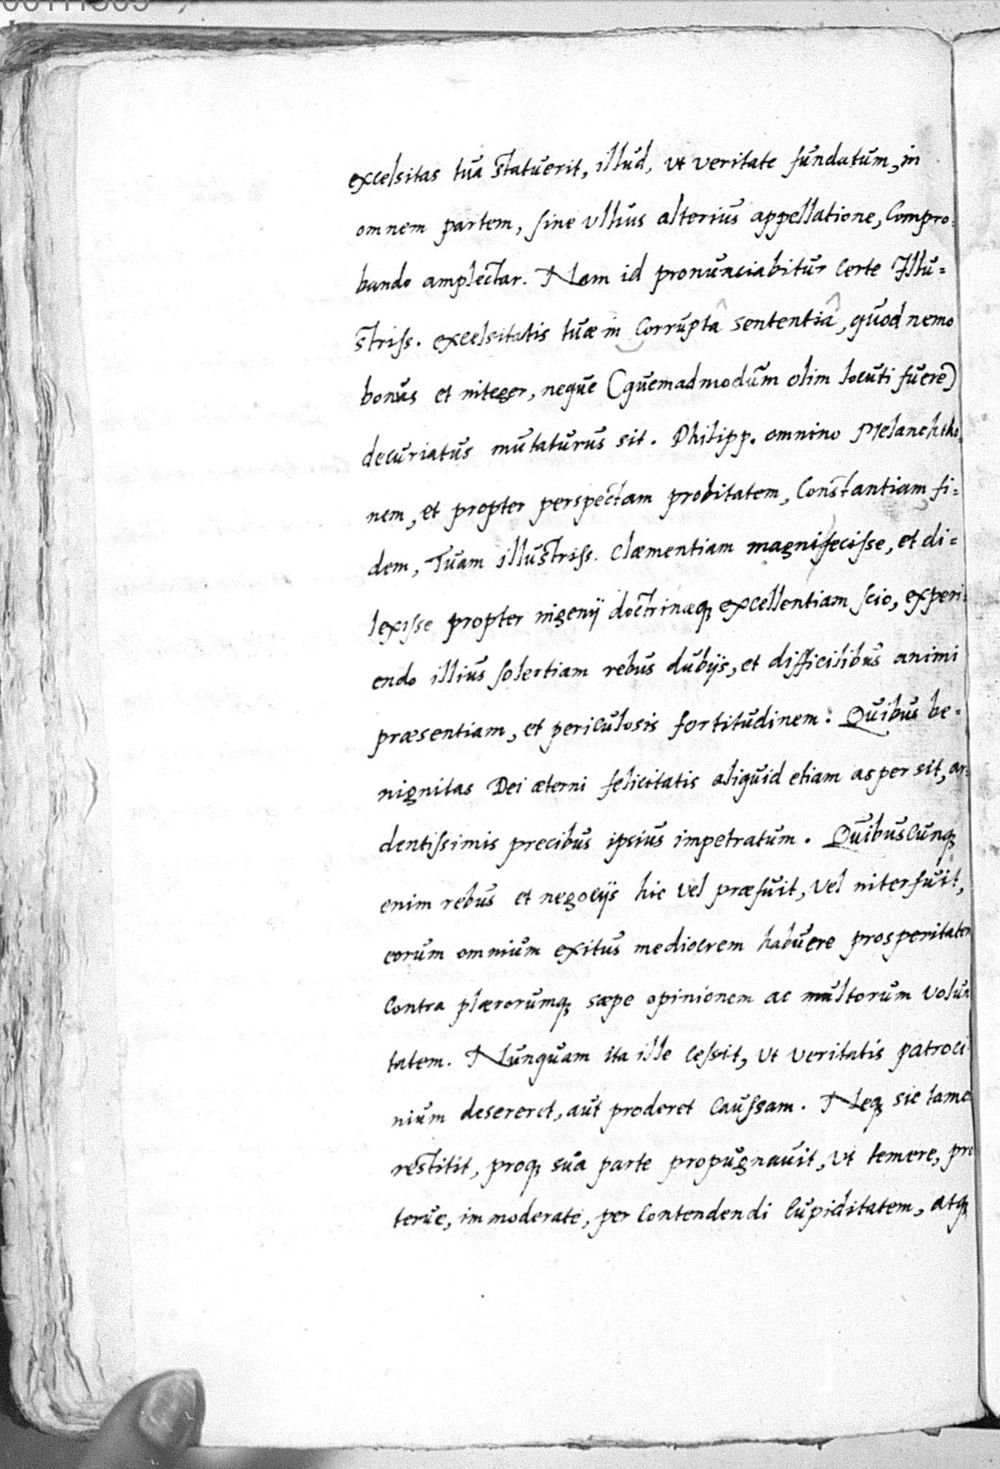 excelsitas tua statuerit, illud, ut veritate fundatum, in
omnem partem, sine ullius alterius appellatione, Compro-
bando amplectar. Nam id pronunciabitur certe Illu=
striss. excelsitatis tuæ in Corrupta sententia, quod nemo
bonus et niteger, neque (quemadmodum olim locuti fuere)
decuriatus mutaturus sit. Philipp. omnino Melanchtho
nem, et propter perspectam probitatem, Constantiam, fi=
dem, Tuam illustriss. Clæmentiam magnifecisse, et di=
lexisse propter nigenij doctrinæq excellentiam scio, experi
endo illius solertiam rebus dubijs, et difficilibus animi
præsentiam, et periculosis fortitudinem: Quibus be-
nignitas Dei æterni felicitatis aliquid etiam aspersit, ar-
dentissimis precibus ipsius impetratum. Quibuscunq
enim rebus et negocijs hic vel præfuit, vel niterfuit,
eorum omnium exitus mediocrem habuere prosperitatem
Contra plærorumq sæpe opinionem ac multorum volun
tatem. Nunquam ita ille cessit, ut veritatis patroci
nium desereret, aut proderet Caussam. Neq sic tamen
restitit, proq sua parte propugnavit, ut temere, pro
terve, immoderate, per Contendendi Cupiditatem, atq